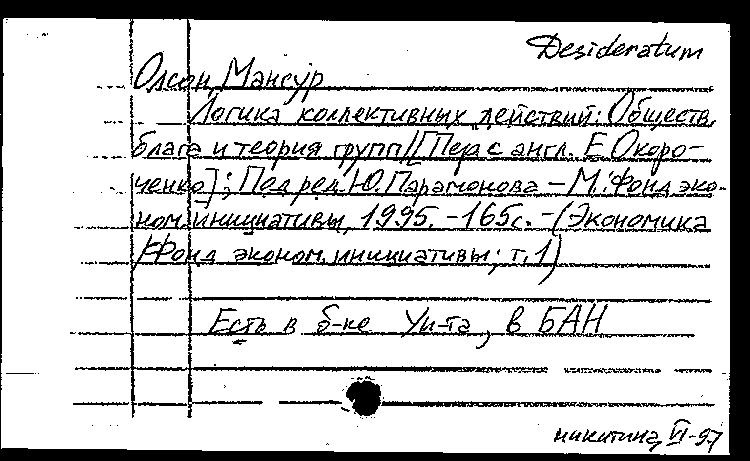 Desideratum
Олсон Мансур
Логика коллективных действий: Обществ.
блага и теория групп/[Пер с англ. Е Окоро-
ченко]; Под ред. Ю. Парамонова – М.: Фонд эко-
ном. инициативы, 1995. – 165с. – (Экономика
/Фонд эконом. инициативы; т. 1)
Есть в б-ке Ун-та, в БАН
никитина, VI-97